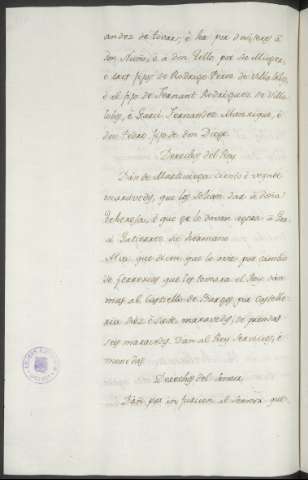 andez de tovar, é ha por deviseros á
don Nuño, é á don Tello, por de Miogra,
é los fijos de Rodrigo Perez de Villalo
é el fijo de Fernant Rodriguez de Villa
lobos, é Garci Fernandez Manrique, é
don Pedro fijo de don Diego
Derechos del Rey
Dan de Martiniega ciento é veynte
maravedis, que los solean dar á doña
Theresa, é que gelo devan agora á
Gutierrez su hermano
Mas que dicen que la ovo por cambio
de ferrenes que les tomara el Rey
mas al Castiello de Burgos por Castelle
ria diez é siete maravedis, de prendas
seis maravedis. Dan al Rey servicios, é
monedas
Derechos del Sennor
Dan por infurcion al sennor que